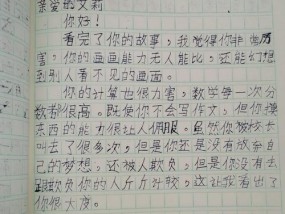 亲爱的艾莉
你好！
看完了你的故事，我觉得你非常厉
害，你的画画能力无人能比，还能幻想
到别人看不见的画面。
你的计算也很力害，数学每一次分
数都很高。既使你不会写作文，但你摸
东西的能力很让人佩服。虽然你被校长
叫去了很多次，但是你还是没有放弃自
己的梦想，还被人欺负，但是你没有去
跟欺负你的人斤斤计较，这让我看出了
你很大度。